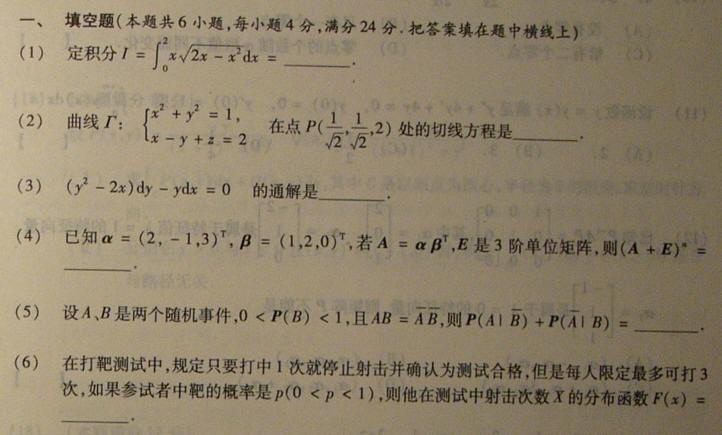 一、 填空题(本题共6小题,每小题4分,满分24分.把答案填在题中横线上)
(1) 定积分 I = ∫₀² x√(2x − x²) dx = ________.
(2) 曲线 Γ: { x² + y² = 1, x − y + z = 2 在点 P(1/√2, 1/√2, 2) 处的切线方程是________.
(3) (y² − 2x)dy − ydx = 0 的通解是________.
(4) 已知 α = (2, −1,3)ᵀ, β = (1,2,0)ᵀ,若 A = αβᵀ,E 是 3 阶单位矩阵,则(A + E)ⁿ =
________.
(5) 设A、B是两个随机事件,0 < P(B) < 1,且 AB = A̅ B̅,则 P(A | B̅) + P(A̅ | B) = ________.
(6) 在打靶测试中,规定只要打中1次就停止射击并确认为测试合格,但是每人限定最多可打3
次,如果参试者中靶的概率是 p(0 < p < 1),则他在测试中射击次数 X 的分布函数 F(x) =
________.